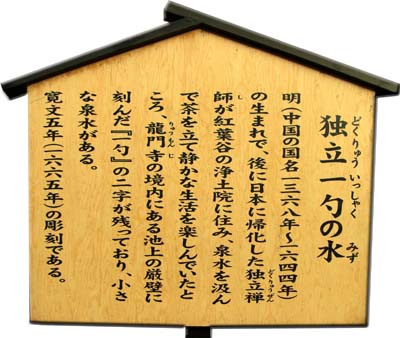 独立一勺の水
どくりゅう いっしゃく みず
明(中国の国名一三六八年～一六四四年)
の生まれで、後に日本に帰化した独立禅
どくりゅうぜん
師が紅葉谷の浄土院に住み、泉水を汲ん
し
で茶を立て静かな生活を楽しんでいたと
ころ、龍門寺の境内にある池上の厳壁に
りゅうもんじ
刻んだ『一勺』の二字が残っており、小さ
な泉水がある。
寛文五年(一六六五年)の彫刻である。